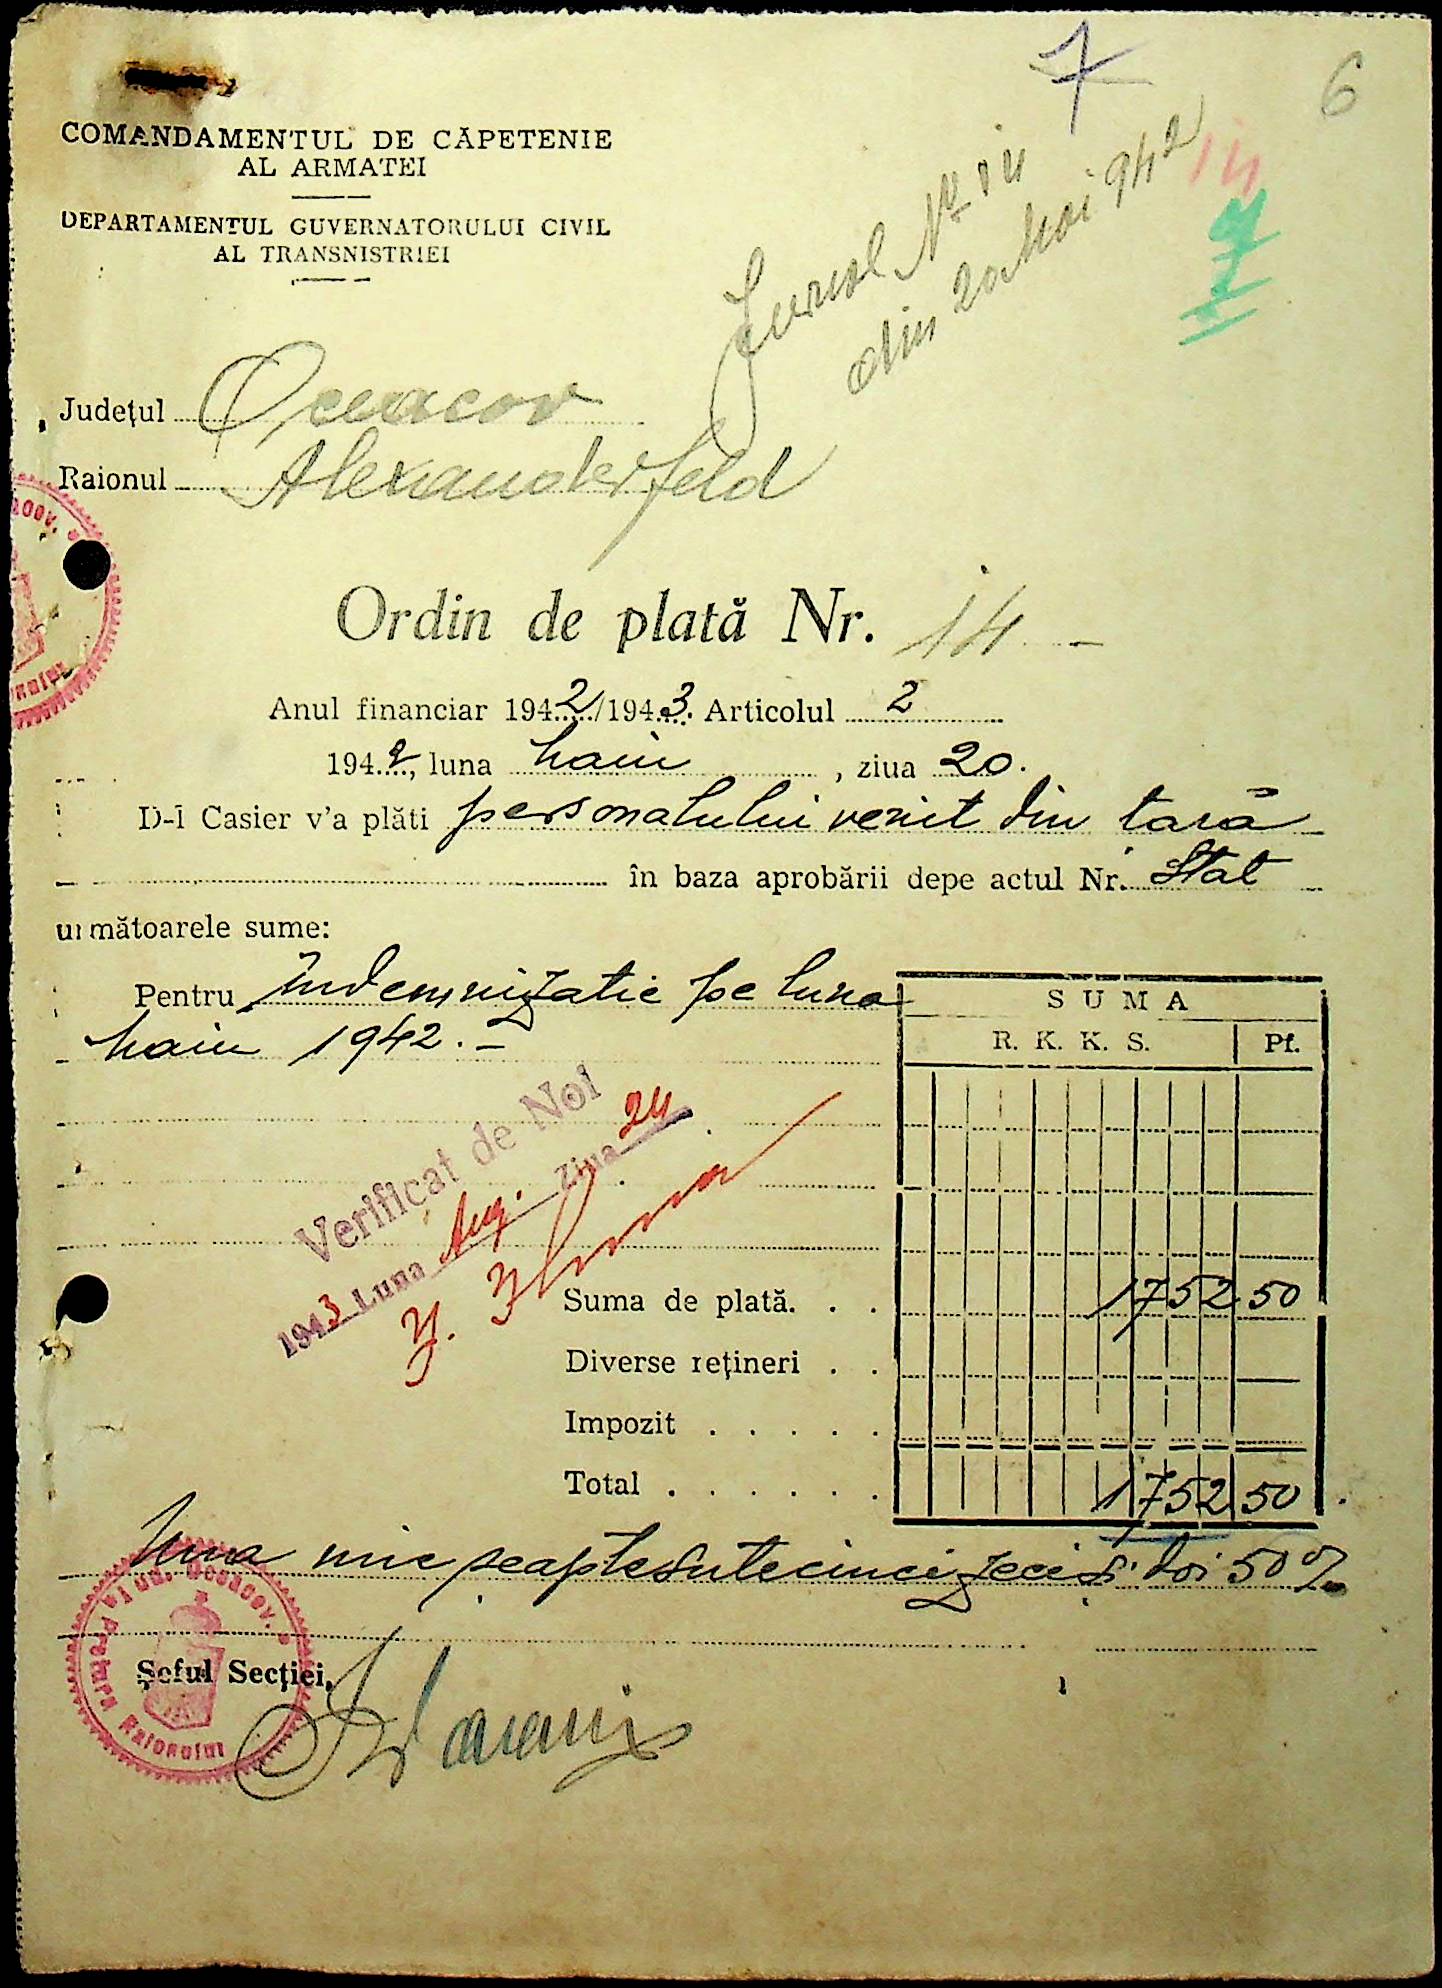 7
6
COMANDAMENTUL DE CĂPETENIE
AL ARMATEI
DEPARTAMENTUL GUVERNATORULUI CIVIL
AL TRANSNISTRIEI
Jurnal Nr. 14
din 20 Mai 942
14
Județul Oceacov
Raionul Alexanderfeld
Ordin de plată Nr. 14
Anul financiar 1942/1943. Articolul 2
1942, luna Maiu, ziua 20.
D-l Casier v'a plăti personalului venit din țară
în baza aprobării depe actul Nr. Stat
următoarele sume:
Pentru îndemnizatie pe luna
Maiu 1942.-
SUMA
R. K. K. S. Pf.
Verificat de Noi
1943 Luna Aug. Ziua 24
Suma de plată. . . 1752 50
Diverse rețineri . .
Impozit . . . . .
Total . . . . . . 1752 50
Una mie șeaptesutecincizeci și doi 50%
Șeful Secției,
Jud. Oceacov.
Pretura Raionului